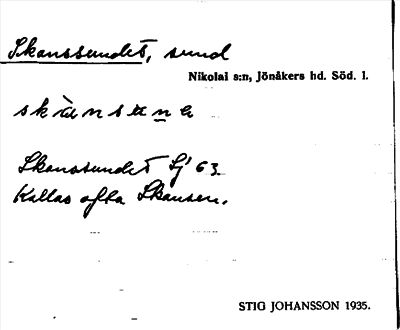 Skanssundet, sund
Nikolai s:n, Jönåkers hd. Söd. l.
Skanssundet Sj 63
Kallas ofta Skansen.
STIG JOHANSSON 1935.